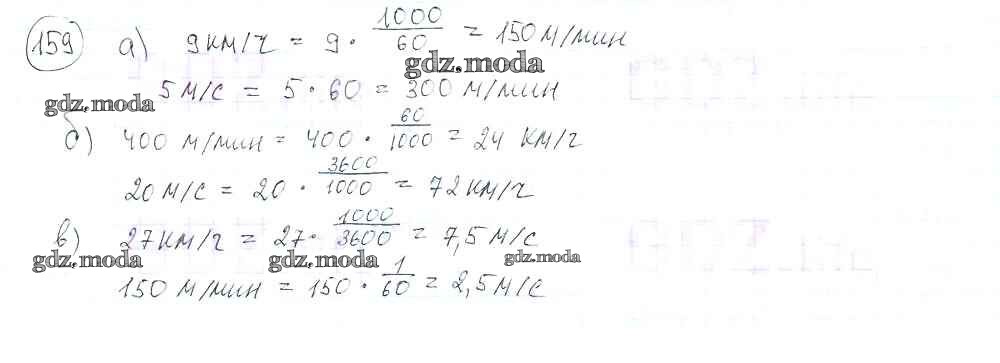 159 а) 9 км/ч = 9 · 1000/60 = 150 м/мин
gdz.moda
5 м/с = 5 · 60 = 300 м/мин
gdz.moda
б) 400 м/мин = 400 · 60/1000 = 24 км/ч
20 м/с = 20 · 3600/1000 = 72 км/ч
в) 27 км/ч = 27 · 1000/3600 = 7,5 м/с
gdz.moda gdz.moda gdz.moda
150 м/мин = 150 · 1/60 = 2,5 м/с